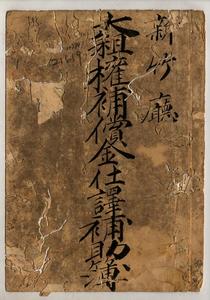 新竹廳
大租權補償金仕譯補助簿